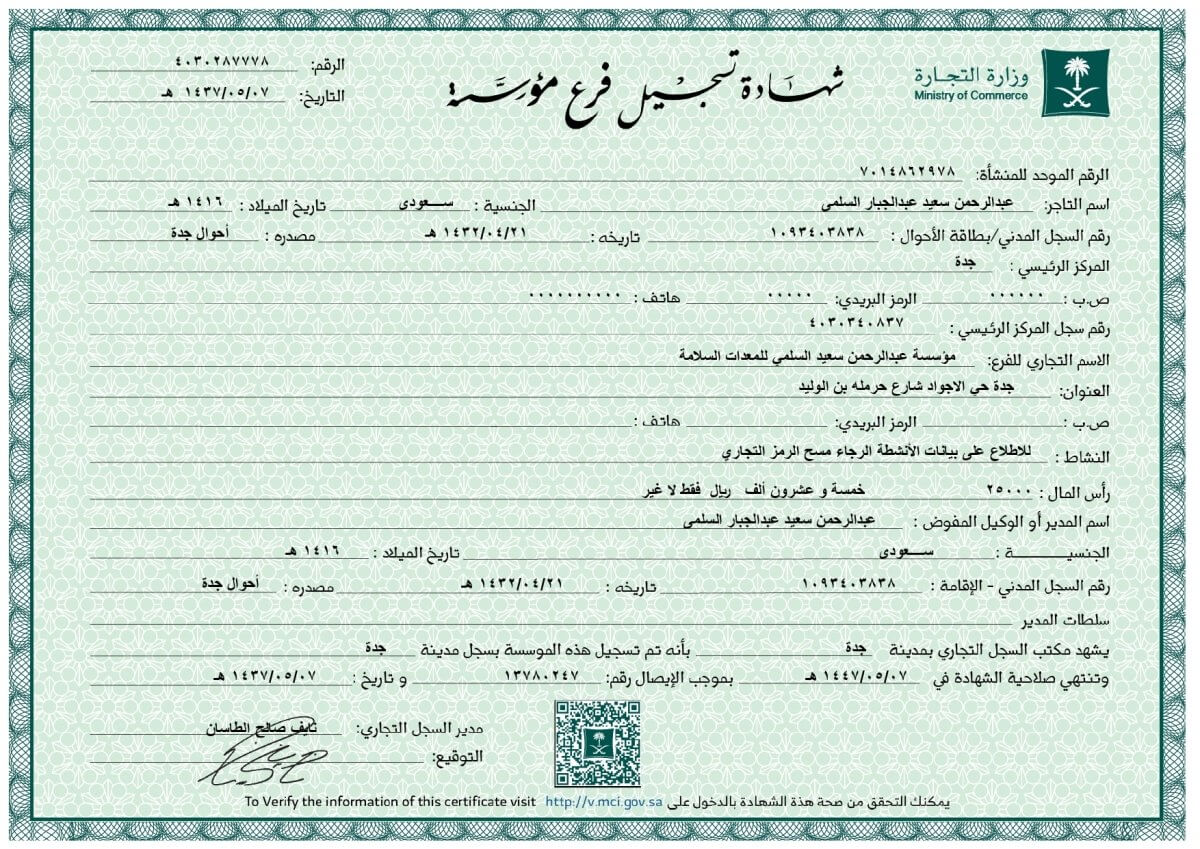 وزارة التجارة
Ministry of Commerce
شهادة تسجيل فرع مؤسسة
الرقم: ٤٠٣٠٢٨٧٧٧٨
التاريخ: ١٤٣٧/٠٥/٠٧ هـ
الرقم الموحد للمنشأة: ٧٠١٤٨٦٢٩٧٨
اسم التاجر: عبدالرحمن سعيد عبدالجبار السلمى الجنسية : سعودى تاريخ الميلاد : ١٤١٦ هـ
رقم السجل المدني/بطاقة الأحوال : ١٠٩٣٤٠٣٨٣٨ تاريخه : ١٤٣٢/٠٤/٢١ هـ مصدره : أحوال جدة
المركز الرئيسي : جدة
ص.ب : ٠٠٠٠٠٠ الرمز البريدي: ٠٠٠٠٠ هاتف : ٠٠٠٠٠٠٠٠٠٠
رقم سجل المركز الرئيسي : ٤٠٣٠٣٤٠٨٣٧
الاسم التجاري للفرع: مؤسسة عبدالرحمن سعيد السلمي للمعدات السلامة
العنوان: جدة حي الاجواد شارع حرمله بن الوليد
ص.ب : الرمز البريدي: هاتف :
النشاط : للاطلاع على بيانات الأنشطة الرجاء مسح الرمز التجاري
رأس المال : ٢٥٠٠٠ خمسة و عشرون ألف ريال فقط لا غير
اسم المدير أو الوكيل المفوض : عبدالرحمن سعيد عبدالجبار السلمى
الجنسيـــــــــــة : سعودى تاريخ الميلاد : ١٤١٦ هـ
رقم السجل المدني - الإقامة : ١٠٩٣٤٠٣٨٣٨ تاريخه : ١٤٣٢/٠٤/٢١ هـ مصدره : أحوال جدة
سلطات المدير
يشهد مكتب السجل التجاري بمدينة جدة بأنه تم تسجيل هذه الموسسة بسجل مدينة جدة
وتنتهي صلاحية الشهادة في ١٤٤٧/٠٥/٠٧ هـ بموجب الإيصال رقم: ١٣٧٨٠٢٤٧ و تاريخ : ١٤٣٧/٠٥/٠٧ هـ
مدير السجل التجاري: نايف صالح الطاسان
التوقيع:
يمكنك التحقق من صحة هذة الشهادة بالدخول على To Verify the information of this certificate visit http://v.mci.gov.sa